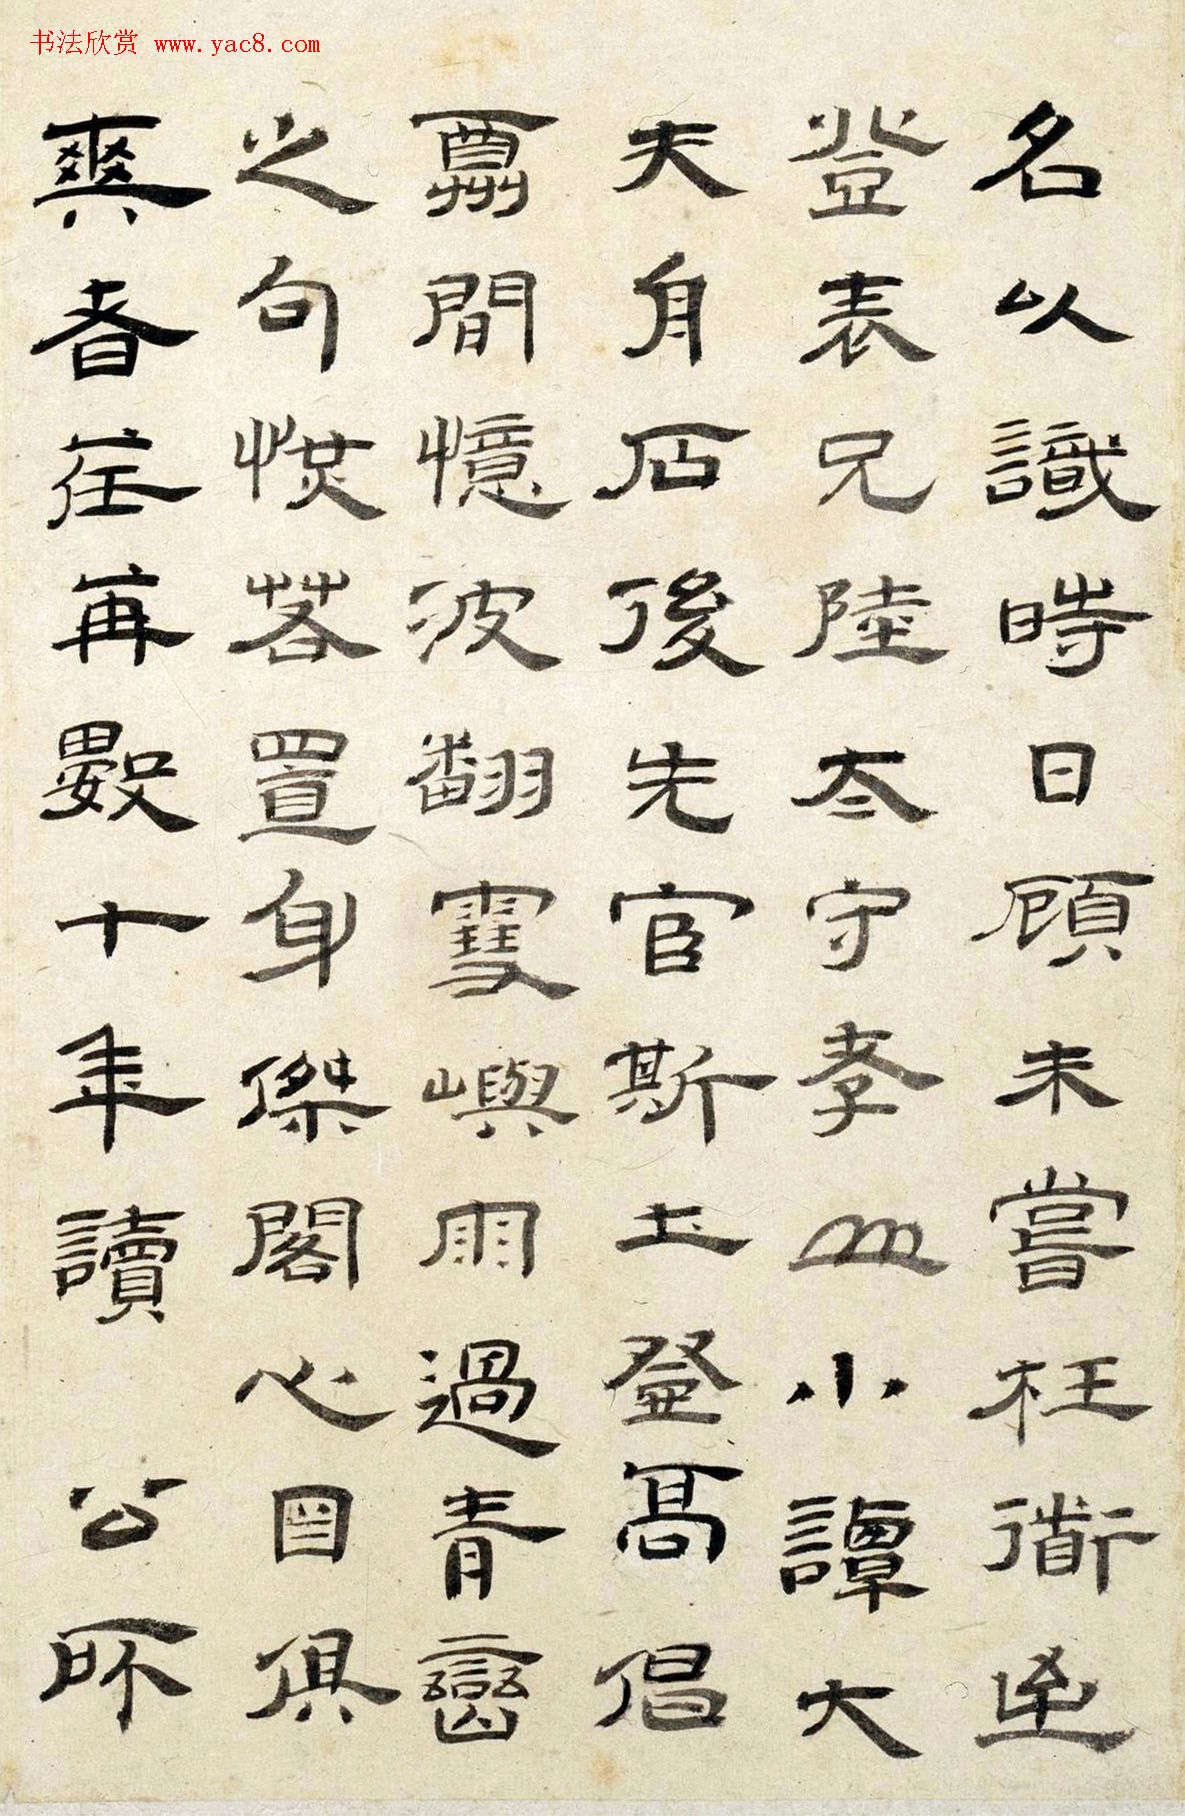 书法欣赏 www.yac8.com
名以識時日顧未嘗枉衜
登表兄陸太守孝山小譚大
夫舟石後先官斯土登高倡
間憶波翻雪嶼雨過青巒
之句恍若置身傑閣心目俱
爽者荏苒數十年讀 公所